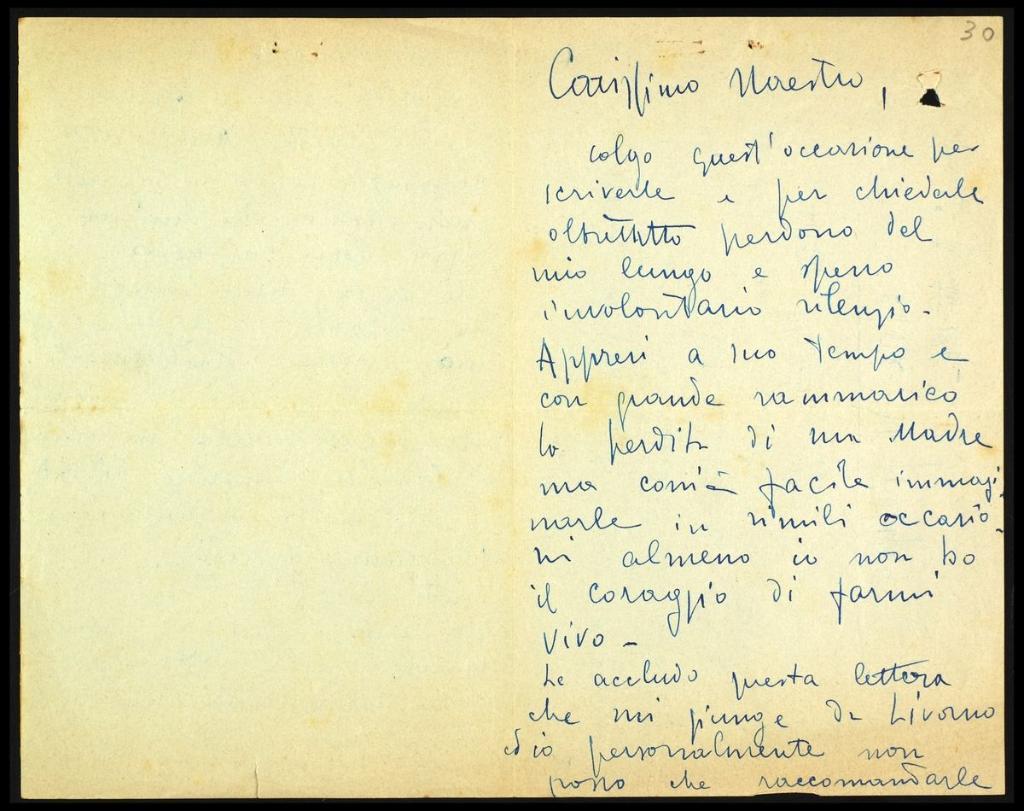 30
Carissimo Maestro,
colgo quest'occasione per
scriverle e per chiederle
oltretutto perdono del
mio lungo e spesso
involontario silenzio.
Appresi a suo tempo e
con grande rammarico
la perdita di sua Madre
ma com'è facile immagi
narle in simili occasio-
ni almeno io non ho
il coraggio di farmi
vivo -
Le accludo questa lettera
che mi giunge da Livorno
ed io personalmente non
posso che raccomandarle